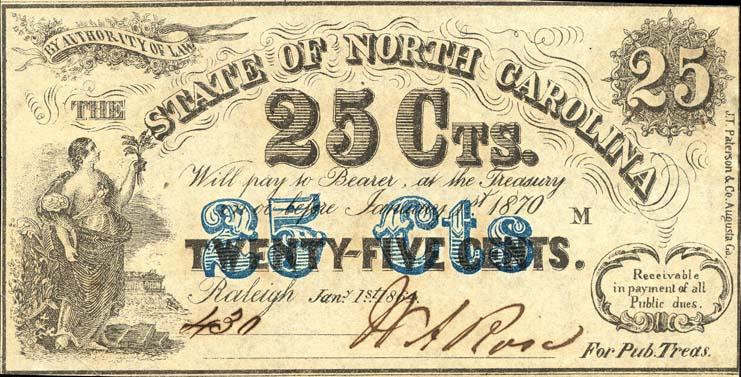 BY AUTHORITY OF LAW
THE
STATE OF NORTH CAROLINA
25
25 CTS.
Will pay to Bearer, at the Treasury
on or before January 1st 1870
M
25 Cts
TWENTY-FIVE CENTS.
Raleigh Jany. 1st. 1864.
430
W A Rose
For Pub. Treas.
Receivable
in payment of all
Public dues.
J.T. Paterson & Co. Augusta Ga.